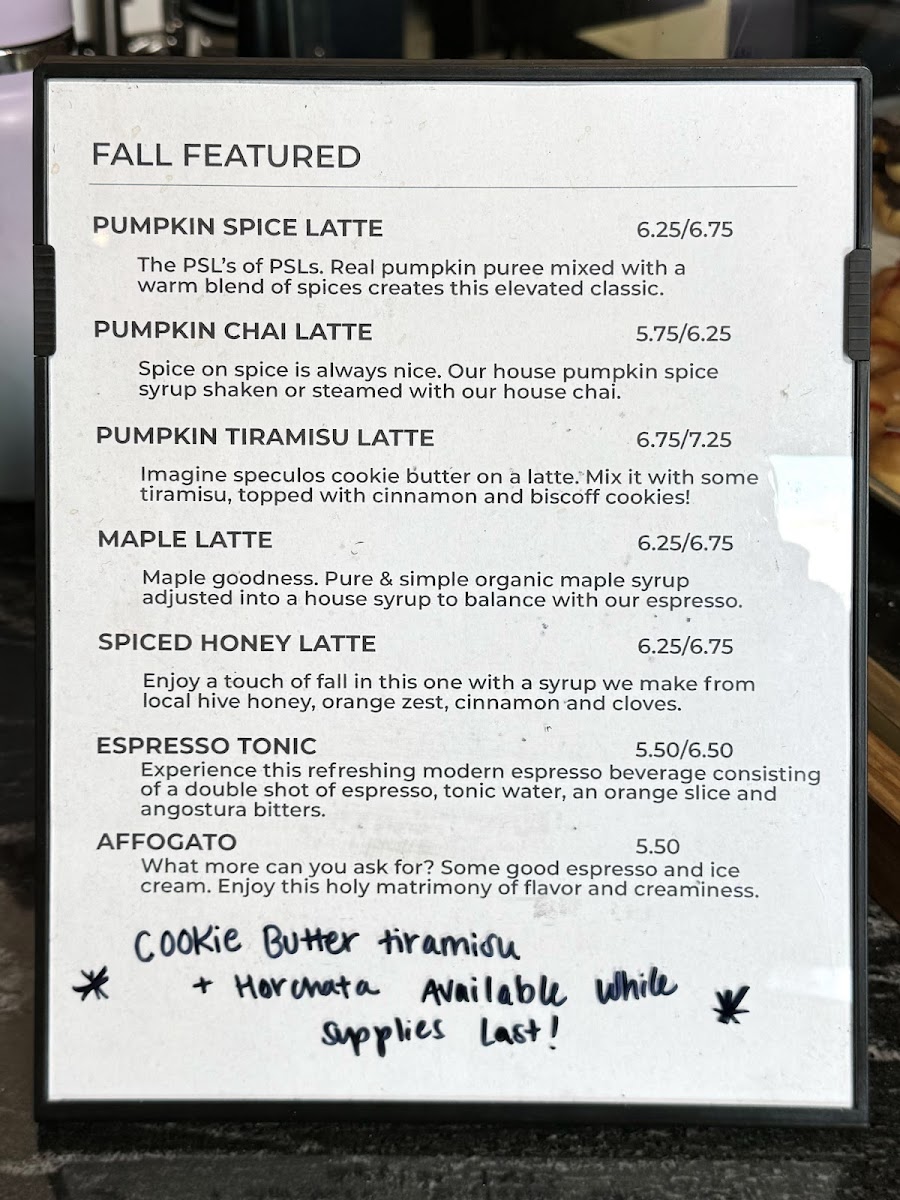 FALL FEATURED
PUMPKIN SPICE LATTE 6.25/6.75
The PSL's of PSLs. Real pumpkin puree mixed with a
warm blend of spices creates this elevated classic.
PUMPKIN CHAI LATTE 5.75/6.25
Spice on spice is always nice. Our house pumpkin spice
syrup shaken or steamed with our house chai.
PUMPKIN TIRAMISU LATTE 6.75/7.25
Imagine speculos cookie butter on a latte. Mix it with some
tiramisu, topped with cinnamon and biscoff cookies!
MAPLE LATTE 6.25/6.75
Maple goodness. Pure & simple organic maple syrup
adjusted into a house syrup to balance with our espresso.
SPICED HONEY LATTE 6.25/6.75
Enjoy a touch of fall in this one with a syrup we make from
local hive honey, orange zest, cinnamon and cloves.
ESPRESSO TONIC 5.50/6.50
Experience this refreshing modern espresso beverage consisting
of a double shot of espresso, tonic water, an orange slice and
angostura bitters.
AFFOGATO 5.50
What more can you ask for? Some good espresso and ice
cream. Enjoy this holy matrimony of flavor and creaminess.
Cookie Butter tiramisu
* + Horchata Available While *
supplies Last!